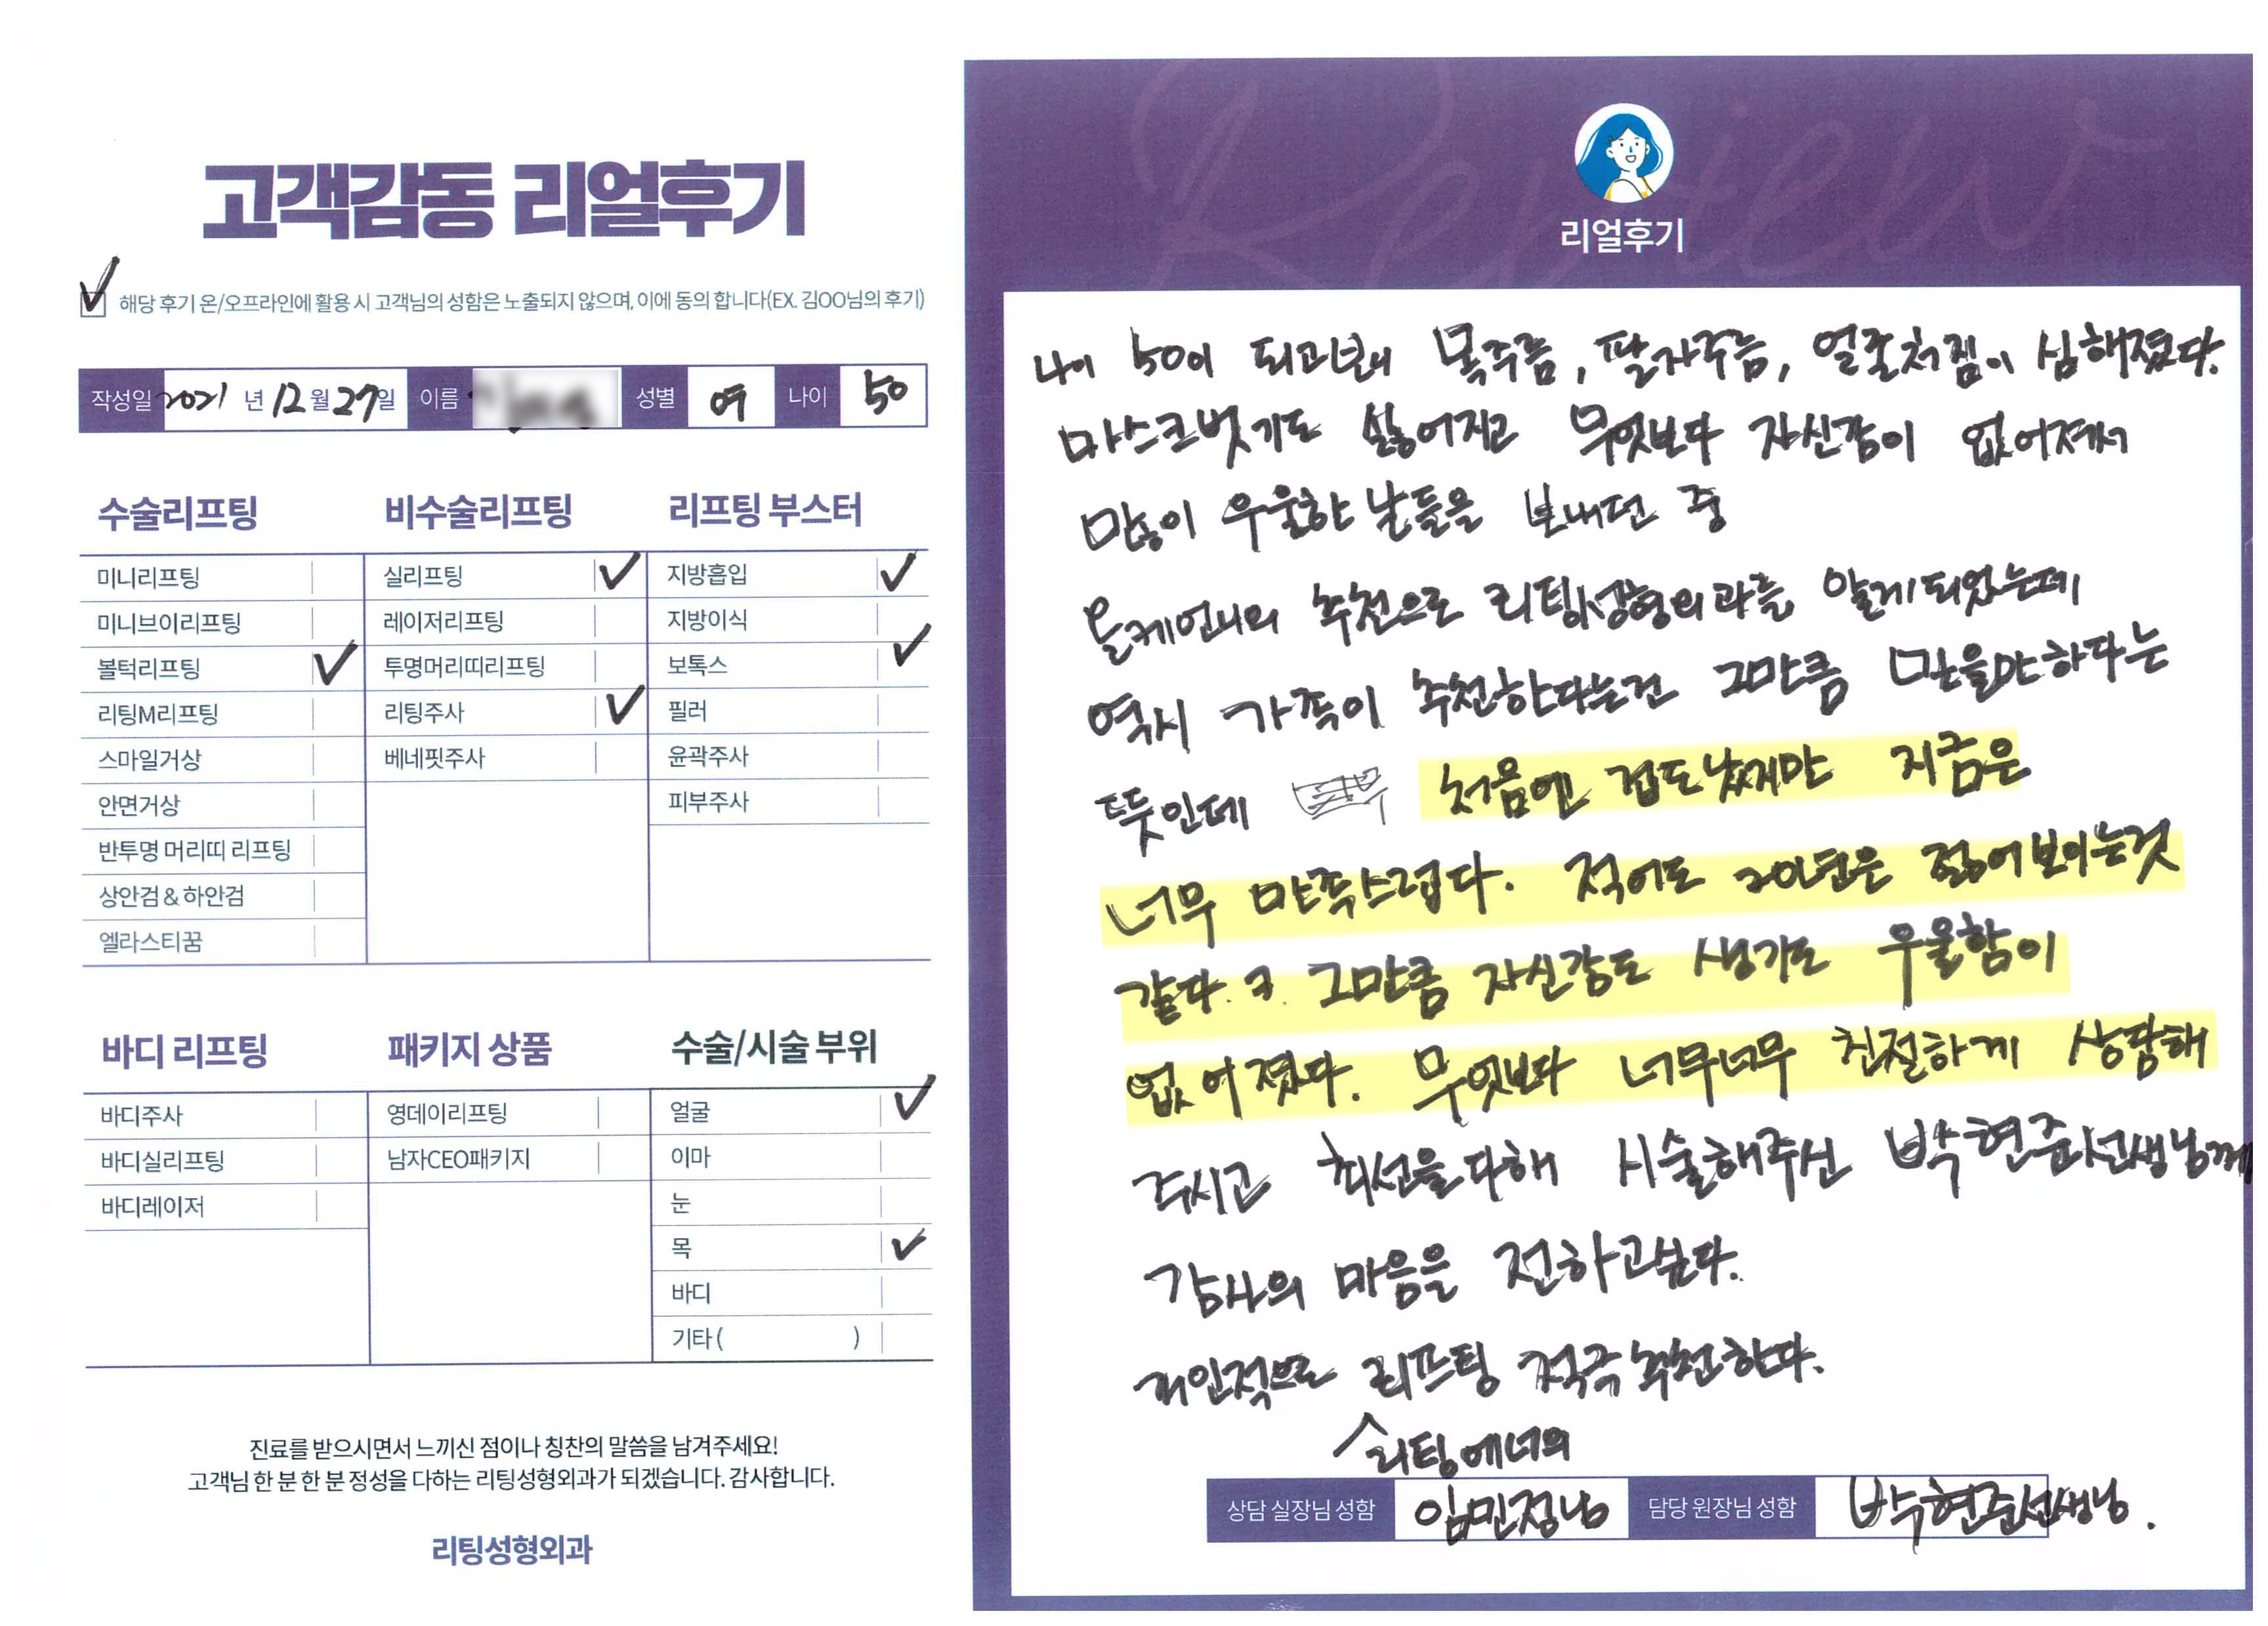 고객감동 리얼후기
해당 후기 온/오프라인에 활용 시 고객님의 성함은 노출되지 않으며, 이에 동의 합니다(EX. 김OO님의 후기)
작성일 2021 년 12 월 27 일 이름 성별 여 나이 50
수술리프팅
미니리프팅
미니브이리프팅
볼턱리프팅 ✓
리팅M리프팅
스마일거상
안면거상
반투명 머리띠 리프팅
상안검 & 하안검
엘라스티꿈
비수술리프팅
실리프팅 ✓
레이저리프팅
투명머리띠리프팅
리팅주사 ✓
베네핏주사
리프팅 부스터
지방흡입 ✓
지방이식
보톡스 ✓
필러
윤곽주사
피부주사
바디 리프팅
바디주사
바디실리프팅
바디레이저
패키지 상품
영데이리프팅
남자CEO패키지
수술/시술 부위
얼굴 ✓
이마
눈
목 ✓
바디
기타 ( )
진료를 받으시면서 느끼신 점이나 칭찬의 말씀을 남겨주세요!
고객님 한 분 한 분 정성을 다하는 리팅성형외과가 되겠습니다. 감사합니다.
리팅성형외과
Review
리얼후기
나이 50이 되고보니 목주름, 팔자주름, 얼굴처짐이 심해졌다.
마스크벗기도 싫어지고 무엇보다 자신감이 없어져서
많이 우울한 날들을 보내던 중
올케언니의 추천으로 리팅성형외과를 알게되었는데
역시 가족이 추천한다는건 그만큼 믿을만하다는
뜻인데 처음엔 겁도났지만 지금은
너무 만족스럽다. 적어도 20년은 젊어보이는것
같다.ㅋ. 그만큼 자신감도 생기도 우울함이
없어졌다. 무엇보다 너무너무 친절하게 상담해
주시고 최선을다해 시술해주신 박현준선생님께
감사의 마음을 전하고싶다.
개인적으로 리프팅 적극추천한다.
상담 실장님 성함 임민정님 담당 원장님 성함 박현준선생님.